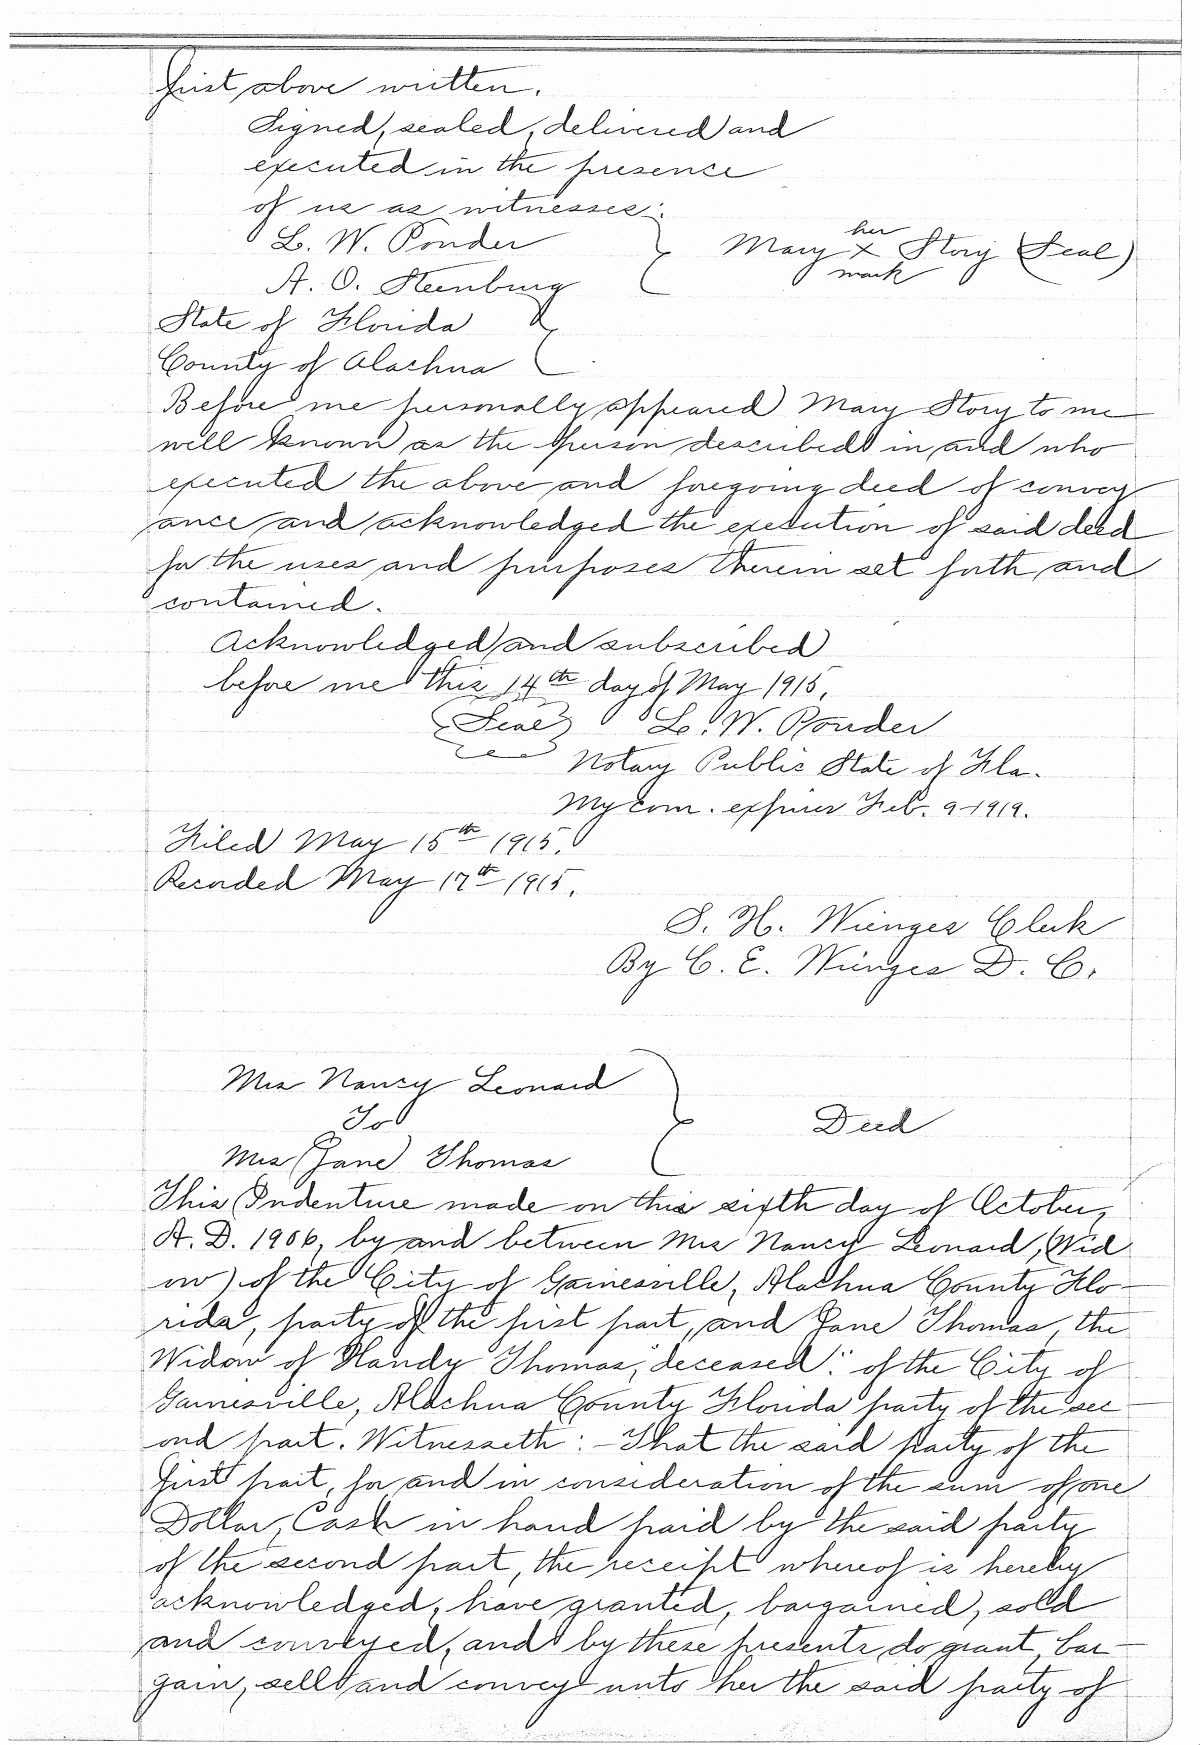 first above written.
Signed, sealed, delivered and
executed in the presence
of us as witnesses:
L. W. Ponder
her
Mary X Story (Seal)
mark
A. O. Steenburg
State of Florida
County of Alachua
Before me personally appeared Mary Story to me
well known as the person described in and who
executed the above and foregoing deed of convey
ance and acknowledged the execution of said deed
for the uses and purposes therein set forth and
contained.
Acknowledged and subscribed
before me this 14th day of May 1915.
(Seal) L. W. Ponder
Notary Public State of Fla.
My com. expires Feb. 9-1919.
Filed May 15th 1915.
Recorded May 17th 1915.
S. H. Wienges Clerk
By C. E. Wienges D. C.
Mrs Nancy Leonard
To
Deed
Mrs Jane Thomas
This Indenture made on this sixth day of October,
A. D. 1906, by and between Mrs Nancy Leonard, (Wid
ow) of the City of Gainesville, Alachua County Flo-
rida, party of the first part, and Jane Thomas, the
Widow of Handy Thomas, "deceased." of the City of
Gainesville, Alachua County Florida party of the sec
ond part. Witnesseth:- That the said party of the
first part, for and in consideration of the sum of one
Dollar, Cash in hand paid by the said party
of the second part, the receipt whereof is hereby
acknowledged, have granted, bargained, sold
and conveyed, and by these presents do grant, bar-
gain, sell and convey unto her the said party of